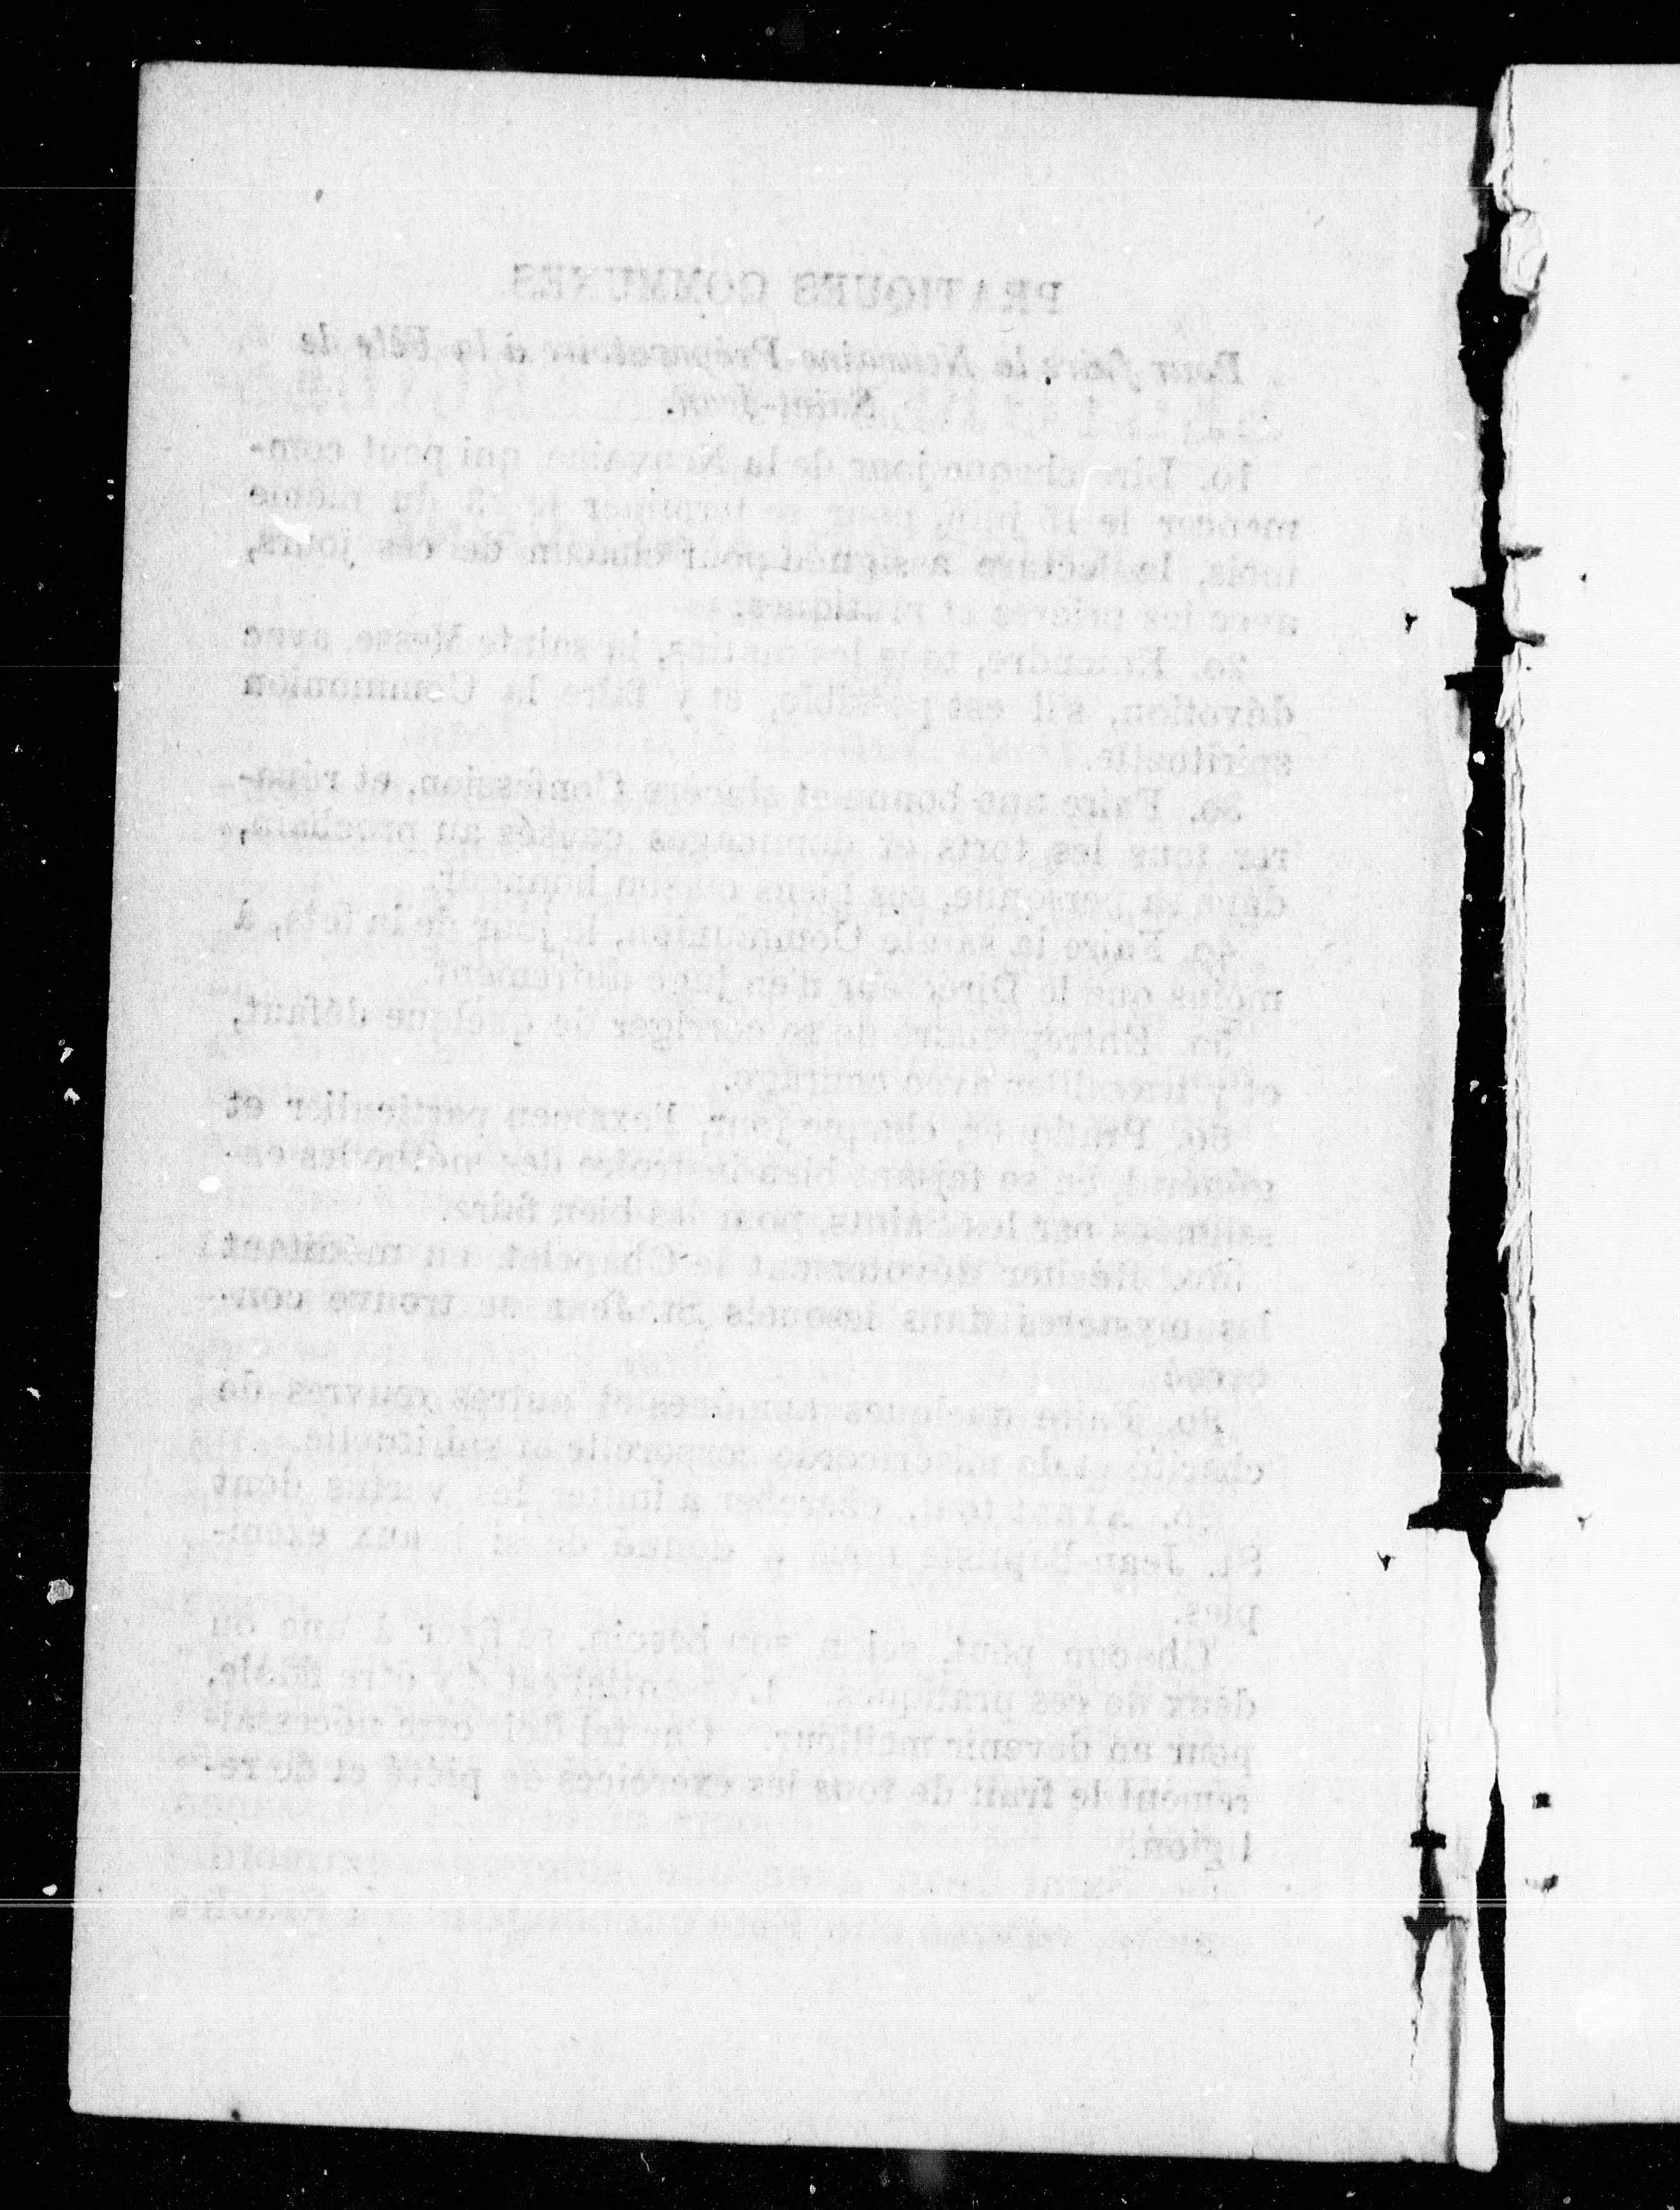 PRATIQUES COMMUNES
Pour faire la Neuvaine Préparatoire à la Fête de
Saint-Jean.
1o. Dire chaque jour de la Neuvaine, qui peut com-
mencer le 15 juin, pour se terminer le 23 du même
mois, la lecture assignée pour chacun de ces jours,
avec les prières et pratiques.
2o. Entendre, tous les matins, la sainte Messe, avec
dévotion, s'il est possible, et y faire la Communion
spirituelle.
3o. Faire une bonne et sincère Confession, et répa-
rer tous les torts et dommages causés au prochain,
dans sa personne, ses biens ou son honneur.
4o. Faire la sainte Communion, le jour de la fête, à
moins que le Directeur n'en juge autrement.
5o. Entreprendre de se corriger de quelque défaut,
et y travailler avec courage.
6o. Pratiquer, chaque jour, l'examen particulier et
général, en se faisant bien instruire des méthodes en-
seignées par les Saints, pour les bien faire.
7o. Réciter dévotement le Chapelet en méditant
les mystères dans lesquels St. Jean se trouve con-
cerné.
8o. Faire quelques aumônes et autres œuvres de
charité et de miséricorde corporelle et spirituelle.
9o. Avant tout, chercher à imiter les vertus dont
St. Jean-Baptiste nous a donné de si beaux exem-
ples.
Chacun peut, selon son besoin, se fixer à une ou
deux de ces pratiques. L'essentiel est d'y être fidèle,
pour en devenir meilleur. Car tel doit être nécessai-
rement le fruit de tous les exercices de piété et de re-
ligion.